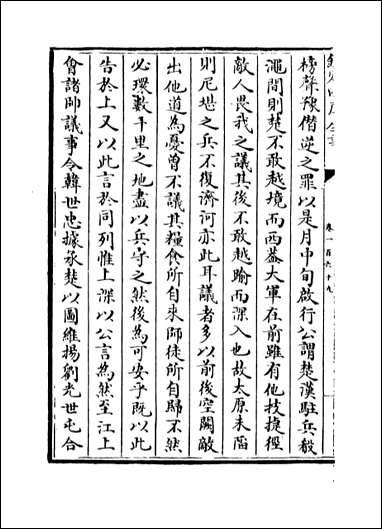 欽定四庫全書
卷一百六十九
榜聲豫僭逆之罪以是月中旬啟行公謂楚漢駐兵殽
澠間則楚不敢越境而西蓋大軍在前雖有他技捷徑
敵人畏我之議其後不敢越踰而深入也故太原未䧟
則尼堪之兵不復濟河亦此耳議者多以前後空闕敵
出他道為憂曽不議其糧食所自來師徒所自歸不然
必環數千里之地盡以兵守之然後為可安乎既以此
告於上又以此言於同列惟上深以公言為然至江上
會諸帥議事令韓世忠據承楚以圖維揚劉光世屯合